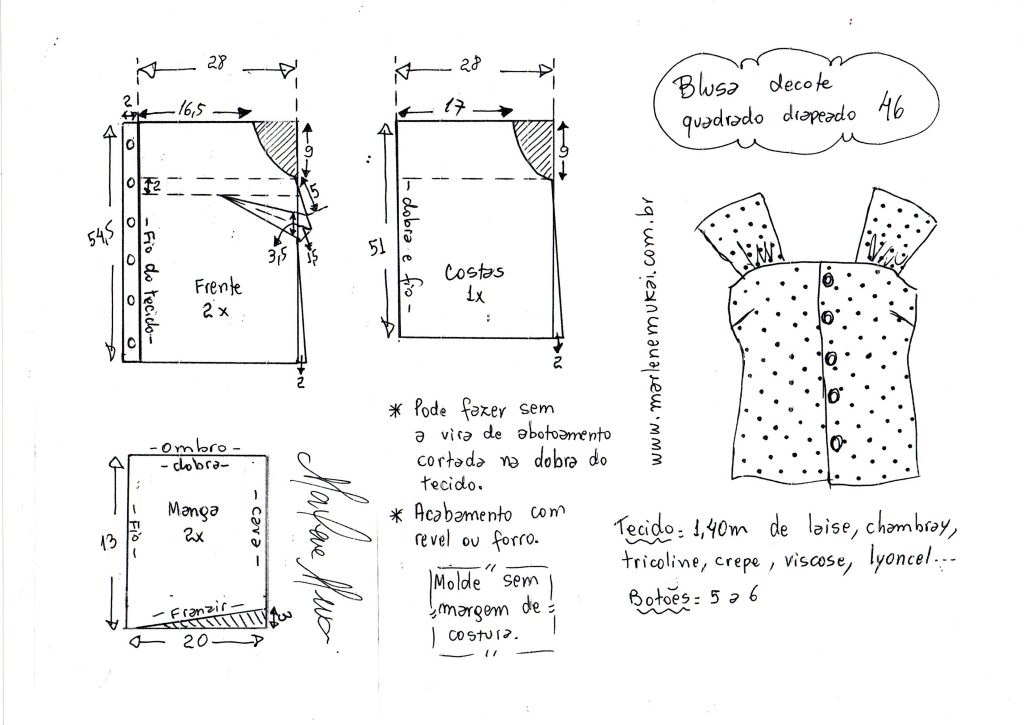 Blusa decote
quadrado drapeado 46
28
2
16,5
9
2
5
3,5
1,5
54,5
- Fio do tecido -
Frente
2x
2
28
17
9
51
- dobra e fio -
Costas
1x
2
www.marlenemukai.com.br
- ombro -
- dobra -
13
- Fio -
Manga
2x
- cava -
- Franzir -
3
20
* Pode fazer sem
a vira de abotoamento
cortada na dobra do
tecido.
* Acabamento com
revel ou forro.
Molde sem
margem de
costura.
Tecido: 1,40m de laise, chambray,
tricoline, crepe, viscose, lyoncel...
Botões: 5 a 6